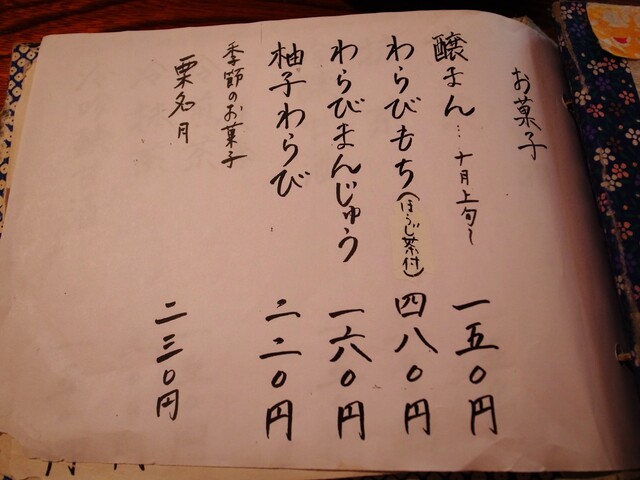 お菓子
醸まん…十月上旬〜 一五〇円
わらびもち(ほうじ茶付) 四八〇円
わらびまんじゅう 一六〇円
柚子わらび 二二〇円
季節のお菓子
栗名月 二三〇円